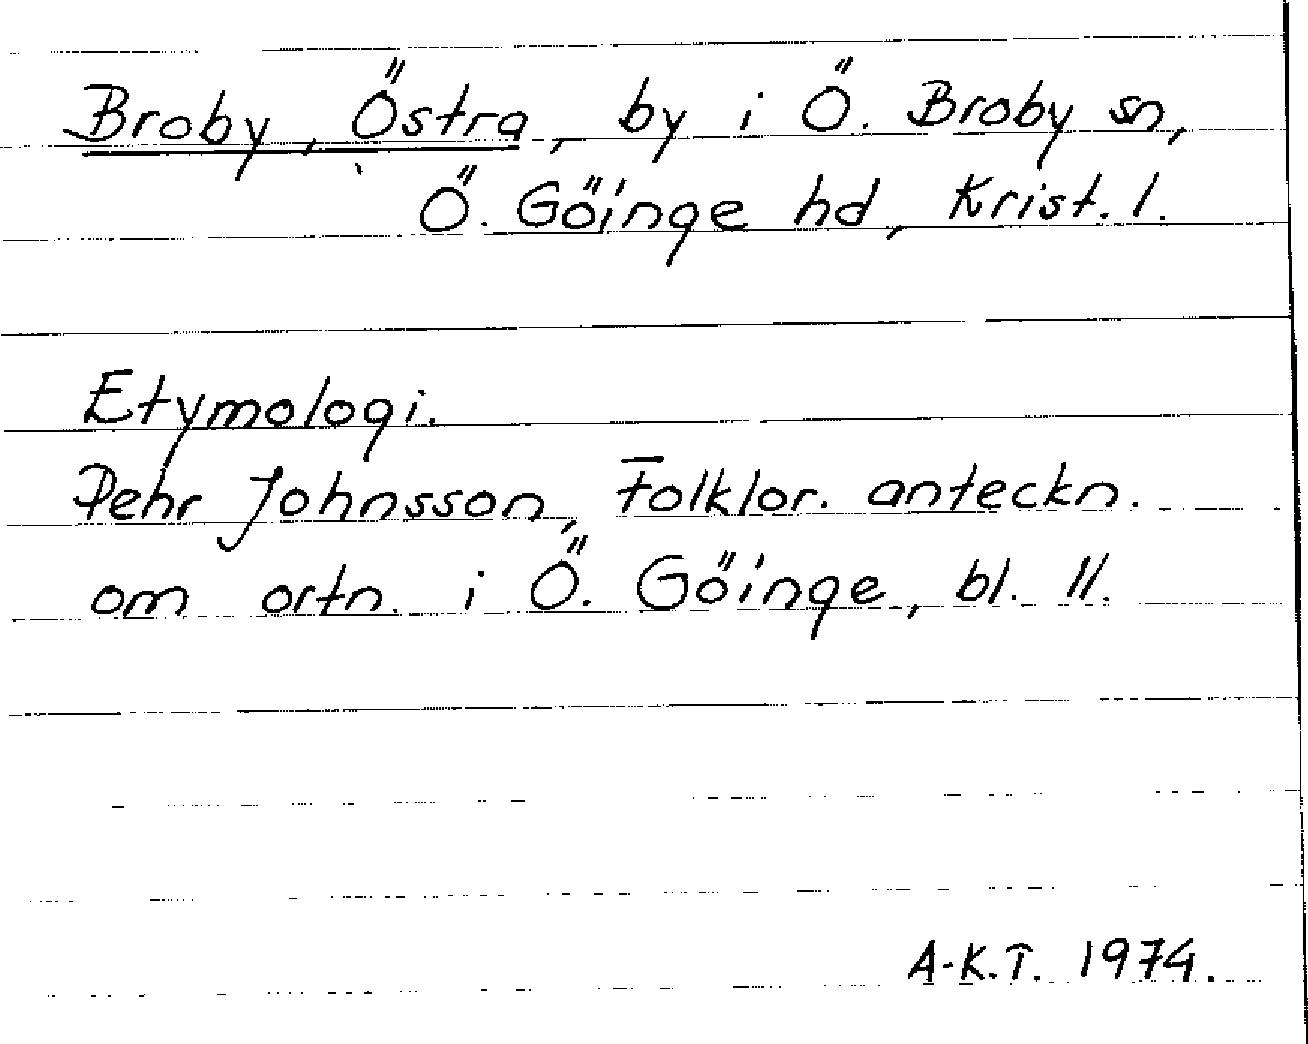 Broby, Östra, by i Ö. Broby sn,
Ö. Göinge hd, Krist. l.
Etymologi.
Pehr Johnsson, Folklor. anteckn.
om ortn. i Ö. Göinge, bl. 11.
A-K.T. 1974.